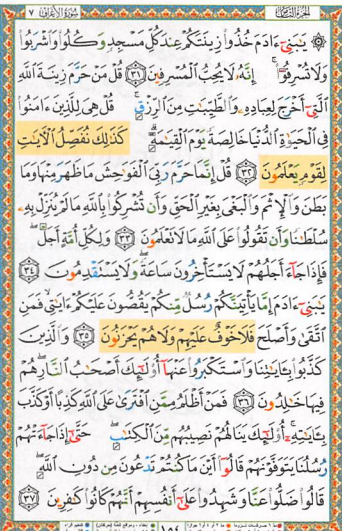 الجزء الثامن ٧ سورة الأعراف
۞ يَٰبَنِىٓ ءَادَمَ خُذُوا۟ زِينَتَكُمْ عِندَ كُلِّ مَسْجِدٍ وَكُلُوا۟ وَٱشْرَبُوا۟
وَلَا تُسْرِفُوٓا۟ ۚ إِنَّهُۥ لَا يُحِبُّ ٱلْمُسْرِفِينَ ٣١ قُلْ مَنْ حَرَّمَ زِينَةَ ٱللَّهِ
ٱلَّتِىٓ أَخْرَجَ لِعِبَادِهِۦ وَٱلطَّيِّبَٰتِ مِنَ ٱلرِّزْقِ ۚ قُلْ هِىَ لِلَّذِينَ ءَامَنُوا۟
فِى ٱلْحَيَوٰةِ ٱلدُّنْيَا خَالِصَةً يَوْمَ ٱلْقِيَٰمَةِ ۗ كَذَٰلِكَ نُفَصِّلُ ٱلْـَٔايَٰتِ
لِقَوْمٍ يَعْلَمُونَ ٣٢ قُلْ إِنَّمَا حَرَّمَ رَبِّىَ ٱلْفَوَٰحِشَ مَا ظَهَرَ مِنْهَا وَمَا
بَطَنَ وَٱلْإِثْمَ وَٱلْبَغْىَ بِغَيْرِ ٱلْحَقِّ وَأَن تُشْرِكُوا۟ بِٱللَّهِ مَا لَمْ يُنَزِّلْ بِهِۦ
سُلْطَٰنًا وَأَن تَقُولُوا۟ عَلَى ٱللَّهِ مَا لَا تَعْلَمُونَ ٣٣ وَلِكُلِّ أُمَّةٍ أَجَلٌ ۖ
فَإِذَا جَآءَ أَجَلُهُمْ لَا يَسْتَأْخِرُونَ سَاعَةً ۖ وَلَا يَسْتَقْدِمُونَ ٣٤
يَٰبَنِىٓ ءَادَمَ إِمَّا يَأْتِيَنَّكُمْ رُسُلٌ مِّنكُمْ يَقُصُّونَ عَلَيْكُمْ ءَايَٰتِى ۙ فَمَنِ
ٱتَّقَىٰ وَأَصْلَحَ فَلَا خَوْفٌ عَلَيْهِمْ وَلَا هُمْ يَحْزَنُونَ ٣٥ وَٱلَّذِينَ
كَذَّبُوا۟ بِـَٔايَٰتِنَا وَٱسْتَكْبَرُوا۟ عَنْهَآ أُو۟لَٰٓئِكَ أَصْحَٰبُ ٱلنَّارِ ۖ هُمْ
فِيهَا خَٰلِدُونَ ٣٦ فَمَنْ أَظْلَمُ مِمَّنِ ٱفْتَرَىٰ عَلَى ٱللَّهِ كَذِبًا أَوْ كَذَّبَ
بِـَٔايَٰتِهِۦٓ ۚ أُو۟لَٰٓئِكَ يَنَالُهُمْ نَصِيبُهُم مِّنَ ٱلْكِتَٰبِ ۖ حَتَّىٰٓ إِذَا جَآءَتْهُمْ
رُسُلُنَا يَتَوَفَّوْنَهُمْ قَالُوٓا۟ أَيْنَ مَا كُنتُمْ تَدْعُونَ مِن دُونِ ٱللَّهِ ۖ
قَالُوا۟ ضَلُّوا۟ عَنَّا وَشَهِدُوا۟ عَلَىٰٓ أَنفُسِهِمْ أَنَّهُمْ كَانُوا۟ كَٰفِرِينَ ٣٧
١٥٤